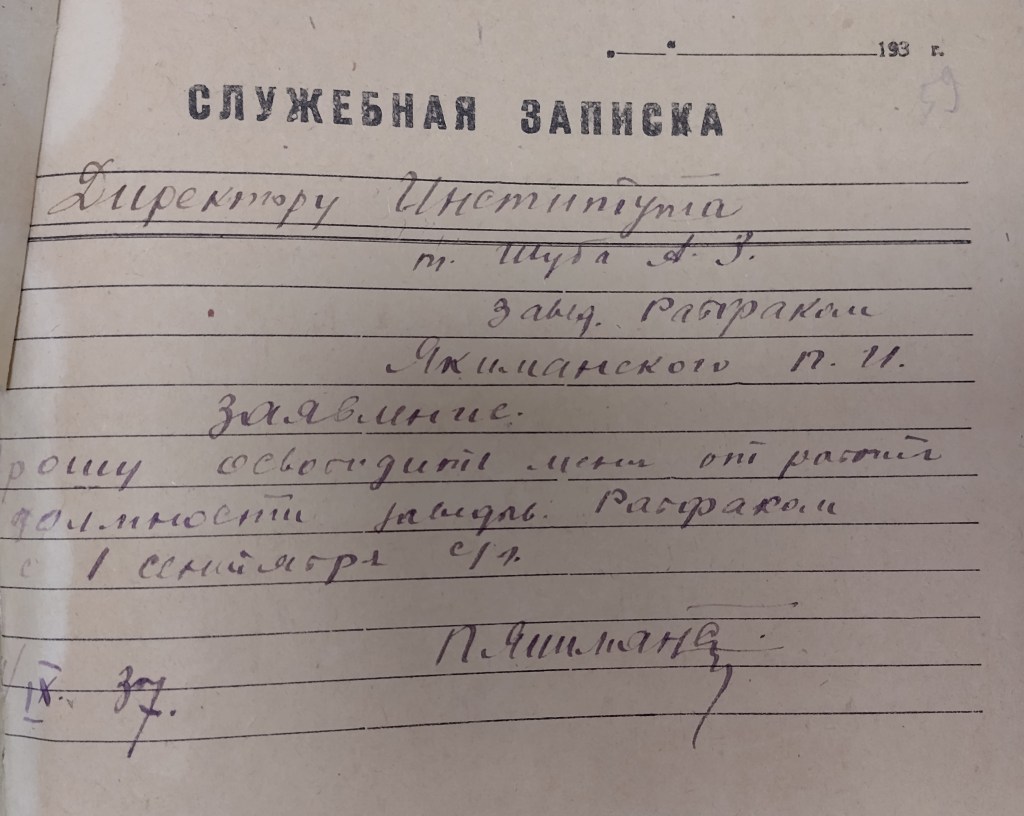 „ “ 193 г.
59
СЛУЖЕБНАЯ ЗАПИСКА
Директору Института
т. Шуба А. З.
завед. Рабфаком
П. И.
Заявление.
рошу освободить меня от работы
должности заведыв. Рабфаком
с 1 сентября с/г.
IX. 37.